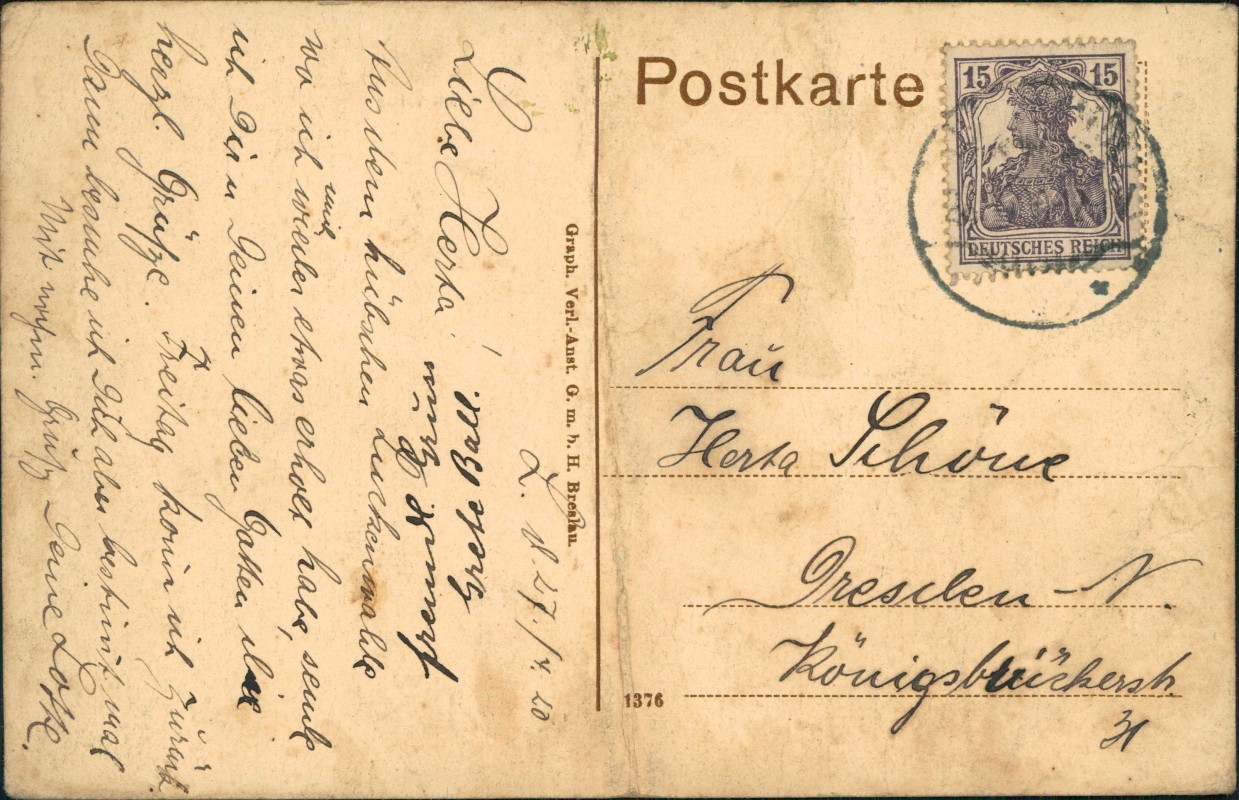 Postkarte
15 15
DEUTSCHES REICH
Frau
Herta Schöne
Dresden-N.
Königsbrückerstr.
31
Graph. Verl.-Anst. G. m. b. H. Breslau.
1376
L. d. 27./4. 20
Liebe Herta!
Aus dem hübschen Luckenwalde
wo ich mich wieder etwas erholt habe, sende
ich Dir u Deinen lieben Gatten die
herzl. Grüße. Freitag komm ich zurück.
Dann besuche ich Dich aber bestimt mal
Mit Gruß Deine Lotte.